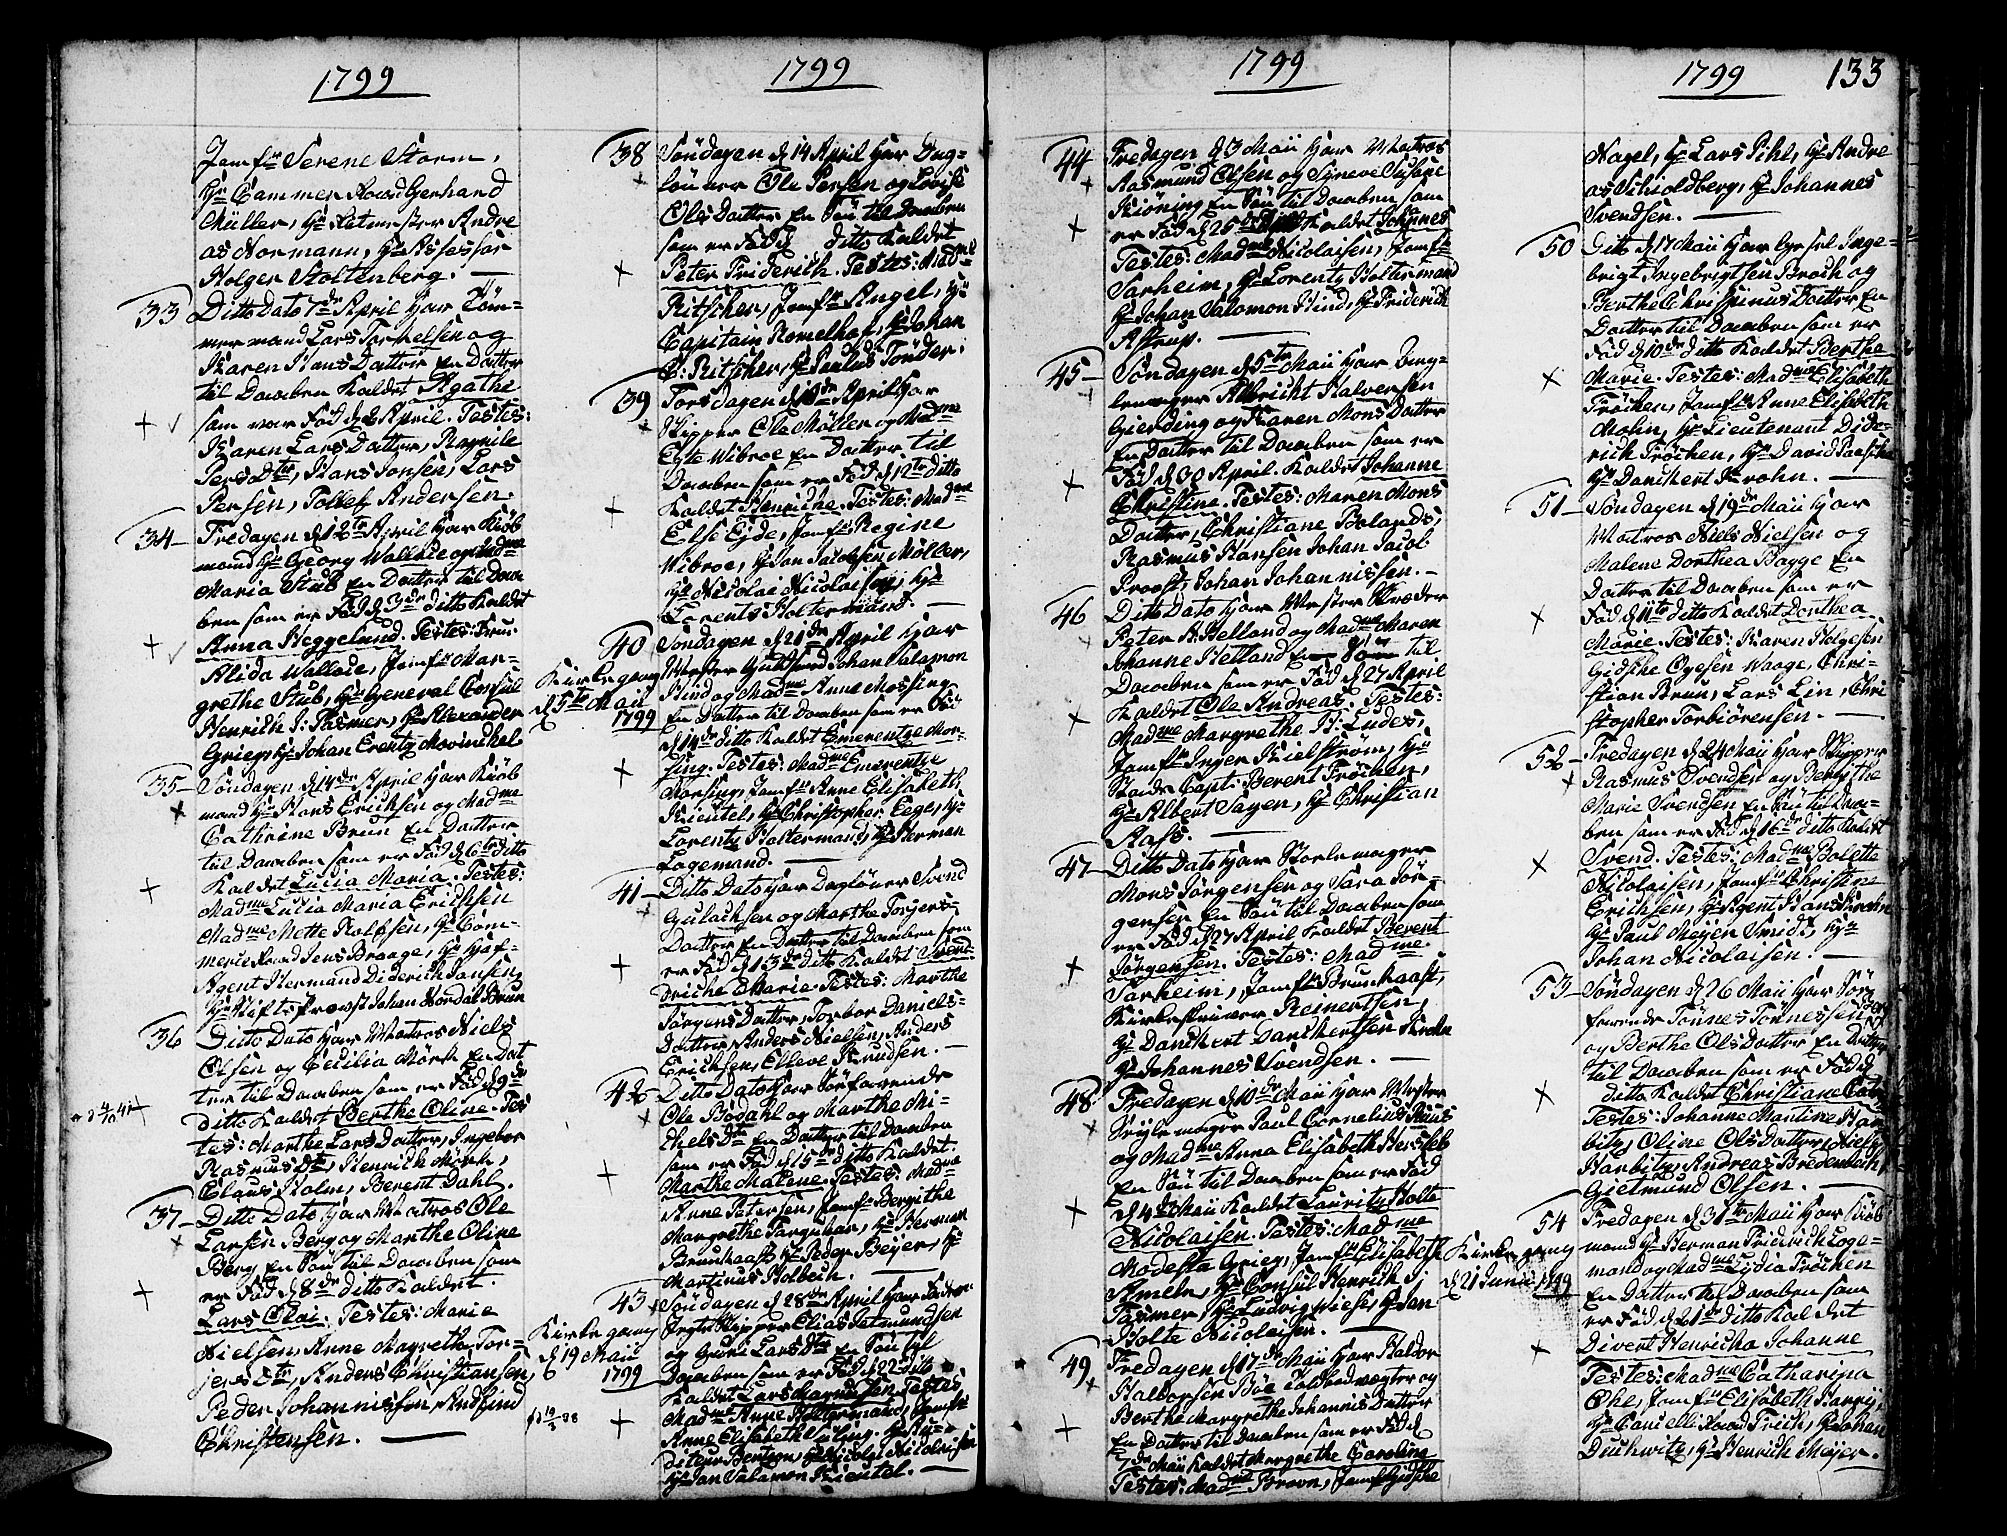 1799
Jomfr Serene Storm,
Hr Cammer Raad Gerhard
Müller, Hr Ritmester Andre
as Normann, Hr Assessor
Holger Stoltenberg.
33
Ditto Dato 7de April har Töm-
mermand Lars Torkelsen og
Karen Hans Datter En Datter
til Daaben Kaldet Agathe
som var Fød d 2 April. Testes:
Karen Lars Datter, Ragnile
Pers Dtr, Hans Jonsen, Lars
Persen, Tollef Andersen.
34
Fredagen d 12te April har Kiöb
mand Hr Georg Wallace og Madme
Maria Stub En Datter til Daa
ben som er Fød d 3de ditto Kaldet
Anna Heggelund. Testes: Frue
Alida Wallace, Jomfr Mar-
grethe Stub, Hr General Consul
Henrich J: Fasmer, Hr Alexander
Grieg, Hr Johan Lrentz Mowinckel
35
Söndagen d 14de April har Kiöb
mand Hr Hans Erichsen og Madme
Cathrine Brun En Datter
til Daaben som er Fød d 6te ditto
Kaldet Lucia Maria. Testes:
Madme Lucia Maria Erichsen
Madme Mette Rolfsen, Hr Com-
merce Raad Jens Braage, Hr Hof-
Agent Hermand Diderich Jansen,
Hr Stiftsprowst Johan Nordal Brun
36
Ditto Dato har Matros Niels
Olsen og Cecilia Mörk En Dat
ter til Daaben som er Fød d 9de
Ditto Kaldet Berthe Oline. Tes
tes: Marthe Lars Datter, Ingebor
Rasmus Dtr, Henrich Mörk,
Claus Holm, Berent Dahl.
37
Ditto Dato har Matros Ole
Larsen Berg og Marthe Oline
Berg En Sön til Daaben som
er Fød d 8de ditto Kaldet.
Lars Olai. Testes: Marie
Nielsen, Anne Magrethe Tor-
jers Dtr, Anders Christiansen,
Peder Johannissen, Andfind
Christensen.
1799
38
Söndagen d 14 April har Dag-
löнner Ole Persen og Lovise
Ols Datter En Sön til Daaben
som er Fød d ditto Kaldet
Peter Friderich. Testes: Madme
Ritscher, Jomfr Angel, Hr
Capitain Romelhof, Hr Johan
C: Ritscher, Hr Paulus Tönder.
39
Torsdagen d 18de April har
Skipper Ole Möller og Madme
Else Wibroe En Datter til
Daaben som er Fød d 12te ditto
Kaldet Henriche. Testes: Madme
Else Eyde, Jomfr Regine
Wibroe, Hr Jan Jacobsen Möller,
Hr Nicolai Nicolaissen, Hr
Lorents Holtermand.
40
Söndagen d 21de April har
Mester Johan Salamon
Hind og Madme Anne Mossing
En Datter til Daaben som er Fød
d 14de ditto Kaldet Emerentze Mos-
sing. Testes: Madme Emerentze
Mossing, Jomfr Anne Elisabeth
Kreutel, Hr Christopher Eeg, Hr
Lorentz Holtermand, Hr Herman
Logemand.
Kirkegang
d 5te Maii
1799
41
Ditto Dato har Daglöner Svend
Gulachsen og Marthe Torjers-
Datter En Datter til Daaben som
er Fød d 13de ditto Kaldet Svend-
driche Marie. Testes: Marthe
Jörgens Datter, Torbor Daniels-
Datter, Anders Nielsen, Anders
Erichsen, Elleve Knudsen.
42
Ditto Dato har Söefarende
Ole Bodahl og Marthe Mi-
chels Dtr En Datter til Daaben
som er Fød d 15de ditto Kaldet.
Marthe Malene. Testes: Madme
Anne Petersen, Jomfr Bergithe
Margrethe Farguhar, Hr Herman
Brunhaast, Hr Peder Beyer, Hr
Martinus Holbech.
43
Söndagen d 28de April har
Skipper Elias Salmundsen
og Guri Lars Dtr En Sön til
Daaben som er Fød d 22 ditto
Kaldet Lars Magnus. Testes
Madme Anne Holtermand, Jomfr
Anne Elisabeth, Hr Au-
diteur Bentzon, Hr Nicolai Nicolaisen
Hr Jan Salamon Kreutel.
Kirkegang
d 19 Maii
1799
1799
44
Fredagen d 3 Maii har Matros
Rasmund Olsen og Synneve Susane
Kiöning En Sön til Daaben som
er Fød d 25de April Kaldet Johannes
Testes: Madme Nicolaisen, Jomfr
Sarheim, Hr Lorentz Holtermand
Hr Johan Salomon Hind, Hr Friderich
Astrup.
45
Söndagen d 5te Maii har
Albricht Halvorsen
Gierding og Karen Mons Datter
En Datter til Daaben som er
Fød d 30 April. Kaldet Johanne
Christina. Testes: Maren Mons
Datter, Christiane Bolands,
Rasmus Hansen, Johan Jacob
Proost, Johan Johannissen.
46
Ditto Dato har Mester Skræder
Peter A: Helland og Madme Maren
Johanne Helland En Sön til
Daaben som er Fød d 27 April
Kaldet Ole Andreas. Testes:
Madme Margrethe H: Luders,
Jomfr Inger Kielström, Hr
Stads Capt: Berent Fröchen,
Hr Albert Sagen, Hr Christian
Rafs.
47
Ditto Dato har Stolemager
Mons Jörgensen og Sara Jör-
gensen En Sön til Daaben som
er Fød d 27 April Kaldet Berent
Jörgensen. Testes: Madme
Sarheim, Jomfr Brunhaast,
Kirkeskriver Reinertsen,
Hr Danckert Danckertsen Krohn
Hr Johannes Svendsen.
48
Fredagen d 10de Maii har Mester
Seylemager Paul Cornelius
og Madme Anna Elisabeth Hersleb
En Sön til Daaben som er Fød
d 4de Maii Kaldet Lauritz Holte
Nicolaisen. Testes: Madme
Modesta Grieg, Jomfr Elisabeth
Ameln, Hr Consul Henrich J:
Fasmer, Hr Ludvig Wiese, Hr Jan
Holte Nicolaisen.
49
Fredagen d 17de Maii har Haldor
Haldorsen Böe Toldbodvægter og
Berthe Margrethe Johannis Datter
En Datter til Daaben som er Fød
7de Maii Kaldet Margrethe Caroline
Testes: Madme Brown, Jomfr Gidske
1799
133
Nagel, Hr Lars Pihl, Hr Andre
as Schioldberg, Hr Johannes
Svendsen.
50
Dito d 17 Maii har Gesel Inge-
brigt Ingebrigtsen Broch og
Berthe Christinus Datter En
Datter til Daaben som er
Fød d 10de ditto Kaldet Berthe
Marie. Testes: Madme Elisabeth
Fröchen, Jomfr Anne Elisabeth
Mohn, Hr Lieutenant Dide-
rich Fröchen, Hr David Paasche
Hr Danckert Krohn.
51
Söndagen d 19de Maii har
Matros Niels Nielsen og
Malene Dorthea Bagge En
Datter til Daaben som er
Fød d 11te ditto Kaldet Dorthea
Marie. Testes: Karen Helgesen
Gidske Ogesen Waage, Chri-
stian Brun, Lars Lin, Chri
stopher Torbiörensen.
52
Fredagen d 24 Maii har Skipper
Rasmus Svendsen og Bergithe
Marie Svendsen En Sön til Daa-
ben som er Fød d 16de ditto Kaldet
Svend. Testes: Madme Bolette
Nicolaisen, Jomfr Christine
Erichsen, Hr Agent Hans Krohn
Hr Paul Meyer Smidt, Hr
Johan Nicolaisen.
53
Söndagen d 26 Maii har Söe
farende Tönnes Tönnessen
og Berthe Ols Datter En Datter
til Daaben som er Fød d
ditto Kaldet Christiane
Testes: Johanne Martine Har
bitz, Oline Ols Datter, Niels
Harbitz, Andreas Bredenbech,
Gietmund Olsen.
54
Fredagen d 31te Maii har Kiöb
mand Hr Herman Friedrich Loge-
mand og Madme Lydia Fröchen
En Datter til Daaben som
er Fød d 21de ditto Kaldet
Divert Henricha Johanne
Testes: Madme Catharina
Ohe, Jomfr Elisabeth Harrij,
Hr Cancelli Raad Frich, Hr Johan
Duchwitz, Hr Henrich Meyer.
Kirkegang
d 21 Junii 1799